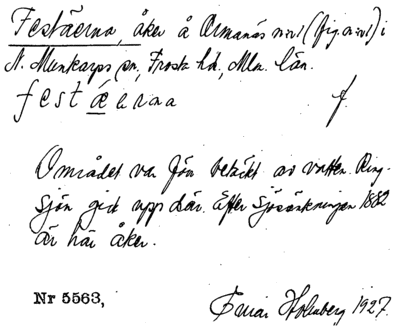 Festäerna, åker å Ormanäs nr 1 (fig. nr 1) i
N. Munkarps sn, Frosta hd, Mlm. län.
festǽerna f.
Området var förr betäckt av vatten. Ring-
sjön gick upp där. Efter sjösänkningen 1882
är här åker.
Nr 5563, Einar Holmberg 1927.